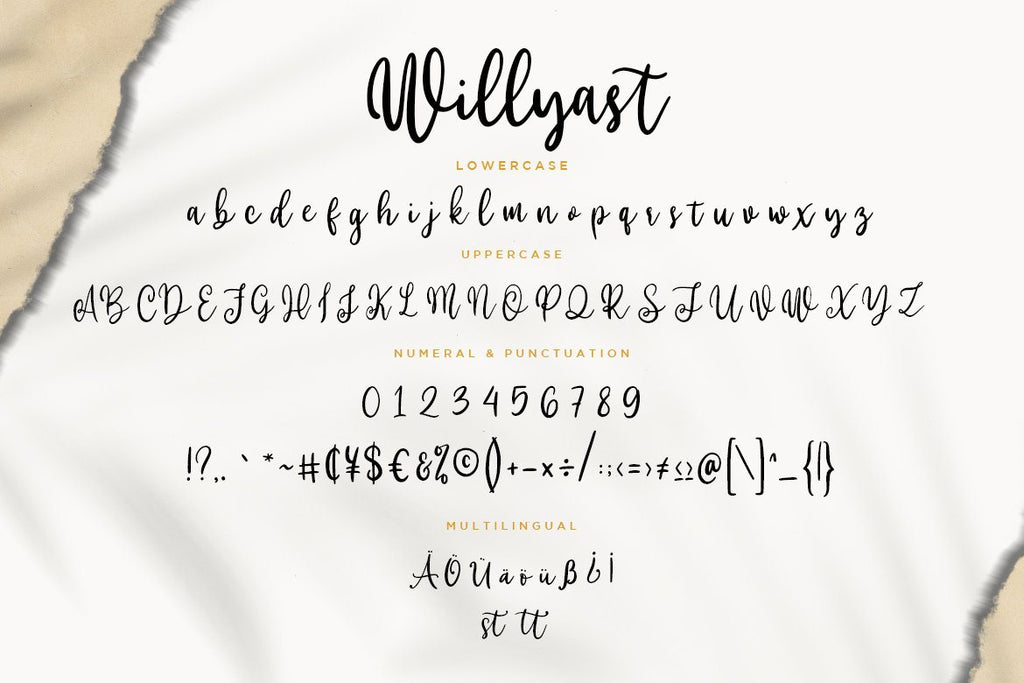 Willyast
LOWERCASE
a b c d e f g h i j k l m n o p q r s t u v w x y z
UPPERCASE
A B C D E F G H I J K L M N O P Q R S T U V W X Y Z
NUMERAL & PUNCTUATION
0 1 2 3 4 5 6 7 8 9
!?,. ` * ~ # ₵ ¥ $ € & % © () + − × ÷ / : ; < = > ≠ ≤ ≥ @ [ \ ] ^ _ { | }
MULTILINGUAL
Ä Ö Ü ä ö ü ß ¿ ¡
st tt